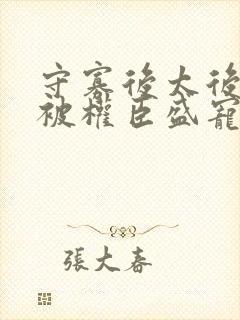 守寡後太後
被權臣盛寵
張大春